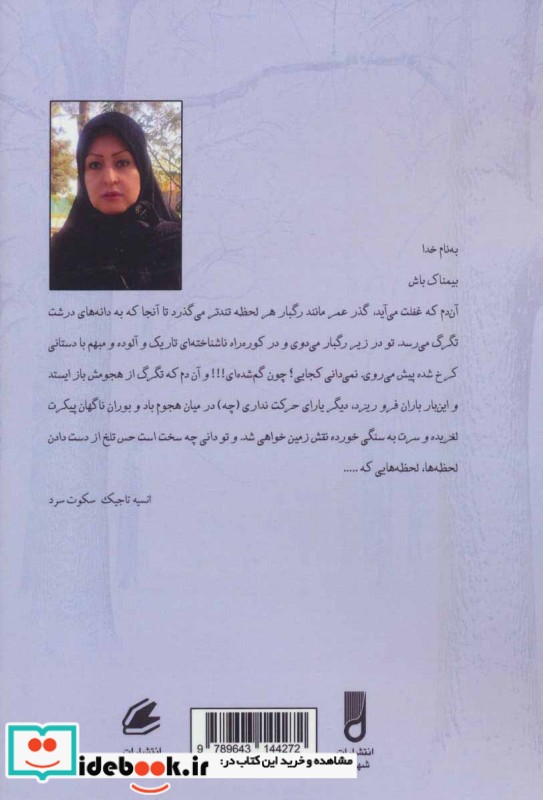 به‌نام خدا
بیمناک باش
آن‌دم که غفلت می‌آید، گذر عمر مانند رگبار هر لحظه تندتر می‌گذرد تا آنجا که به دانه‌های درشت
تگرگ می‌رسد. تو در زیر رگبار می‌دوی و در کوره‌راه ناشناخته‌ای تاریک و آلوده و مبهم با دستانی
کرخ شده پیش می‌روی. نمی‌دانی کجایی؛ چون گم‌شده‌ای!!! و آن دم که تگرگ از هجومش باز ایستد
و این‌بار باران فرو ریزد، دیگر یارای حرکت نداری (چه) در میان هجوم باد و بوران ناگهان پیکرت
لغزیده و سرت به سنگی خورده نقش زمین خواهی شد. و تو دانی چه سخت است حس تلخ از دست دادن
لحظه‌ها، لحظه‌هایی که .....
انسیه تاجیک سکوت سرد
9 789643 144272
انتشارات
شه
انتشارات
مشاهده و خرید این کتاب در:
idebook.ir